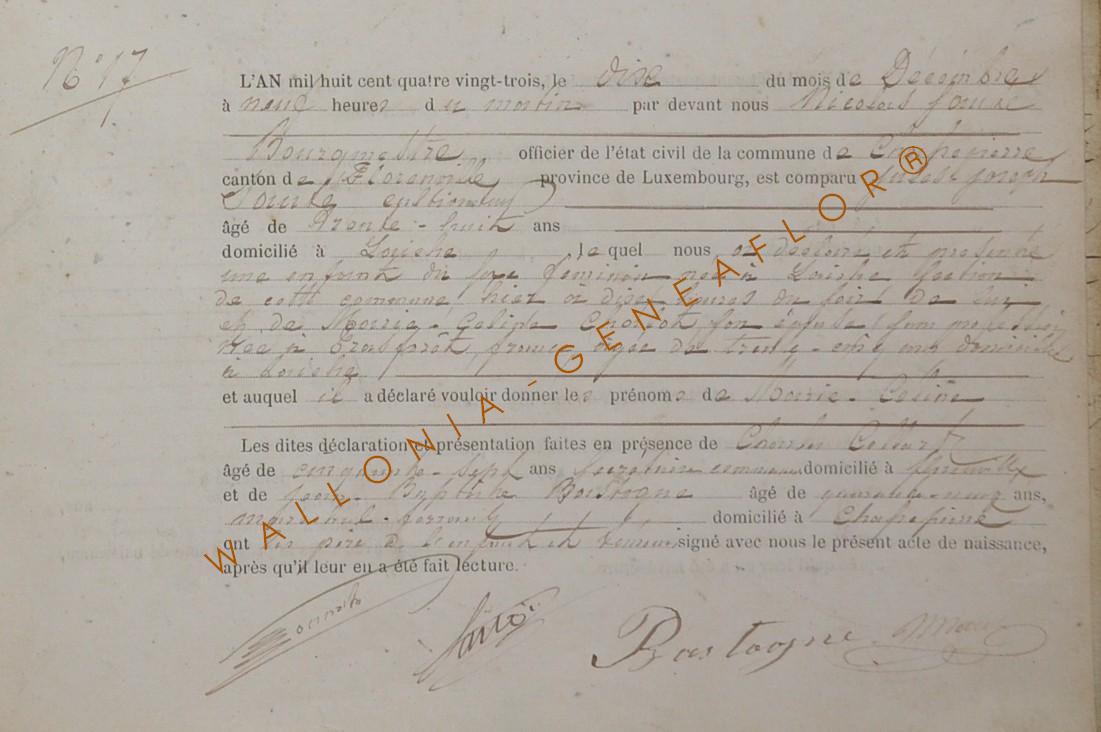 N° 17
L'AN mil huit cent quatre vingt-trois, le dix du mois de Décembre
à neuf heures du matin par devant nous Nicolas
Bourgmestre officier de l'état civil de la commune de Chassepierre
canton de Florenville province de Luxembourg, est comparu Joseph
âgé de trente-huit ans
domicilié à Laiche lequel nous a déclaré et présenté
une enfant du sexe féminin née à Laiche section
de cette commune hier à dix heures du soir de lui
et de Marie-Celine son épouse
née à France, âgée de trente-cinq ans domiciliée
à Laiche
et auquel il a déclaré vouloir donner les prénoms de Marie-Celine
Les dites déclaration et présentation faites en présence de Charles
âgé de cinquante-sept ans secrétaire communal domicilié à
et de Jean-Baptiste Bastogne âgé de quarante-neuf ans,
maréchal-ferrant domicilié à Chassepierre
ont les père de l'enfant et témoins signé avec nous le présent acte de naissance,
après qu'il leur en a été fait lecture.
Bastogne
WALLONIA-GENEAFLOR®